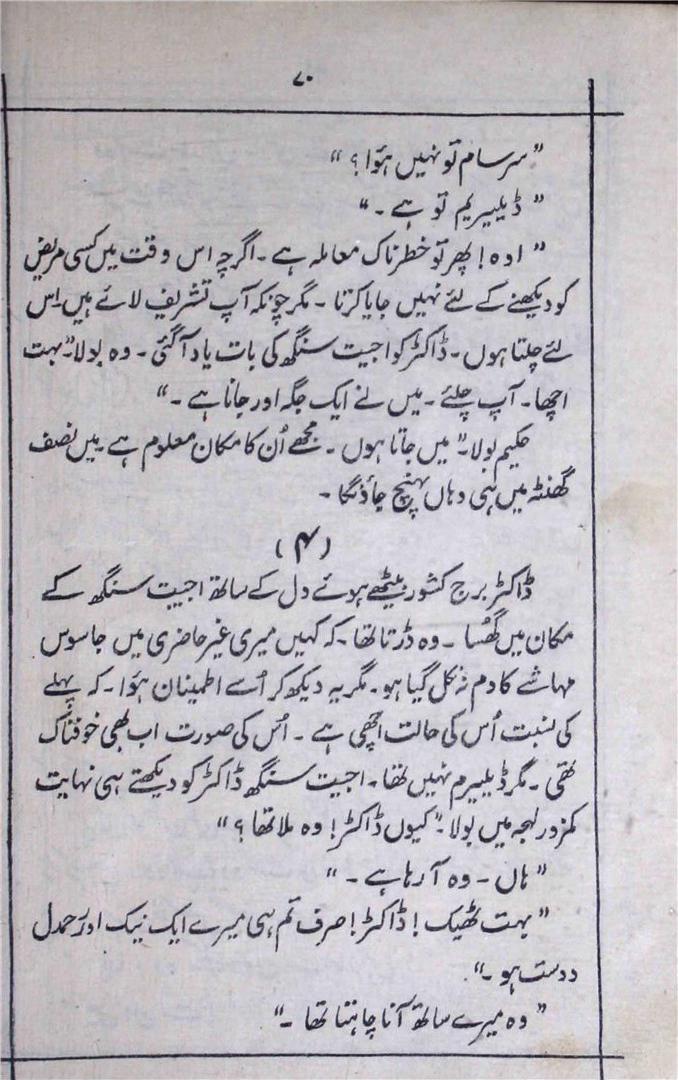 ۷۰
"سرسام تو نہیں ہؤا؟"
"ڈیلیریم تو ہے۔"
"اوہ! پھر تو خطرناک معاملہ ہے۔ اگرچہ اس وقت میں کسی مریض
کو دیکھنے کے لئے نہیں جایا کرتا۔ مگر چونکہ آپ تشریف لائے ہیں۔ اس
لئے چلتا ہوں۔ ڈاکٹر کو اجیت سنگھ کی بات یاد آگئی۔ وہ بولا۔"بہت
اچھا۔ آپ چلئے۔ میں نے ایک جگہ اور جانا ہے۔"
حکیم بولا۔" میں جاتا ہوں۔ مجھے اُن کا مکان معلوم ہے۔ میں نصف
گھنٹہ میں ہی وہاں پہنچ جاؤنگا۔
(۴)
ڈاکٹر برج کشور بیٹھے ہوئے دل کے ساتھ اجیت سنگھ کے
مکان میں گھُسا۔ وہ ڈرتا تھا۔ کہ کہیں میری غیر حاضری میں جاسوس
مہاشے کا دم نہ نکل گیا ہو۔ مگر یہ دیکھ کر اُسے اطمینان ہؤا۔ کہ پہلے
کی نسبت اُس کی حالت اچھی ہے۔ اُس کی صورت اب بھی خوفناک
تھی۔ مگر ڈیلیرم نہیں تھا۔ اجیت سنگھ ڈاکٹر کو دیکھتے ہی نہایت
کمزور لہجہ میں بولا۔"کیوں ڈاکٹر! وہ ملا تھا؟"
"ہاں۔ وہ آ رہا ہے۔"
"بہت ٹھیک! ڈاکٹر! صرف تم ہی میرے ایک نیک اور رحمدل
دوست ہو۔"
"وہ میرے ساتھ آنا چاہتا تھا۔"